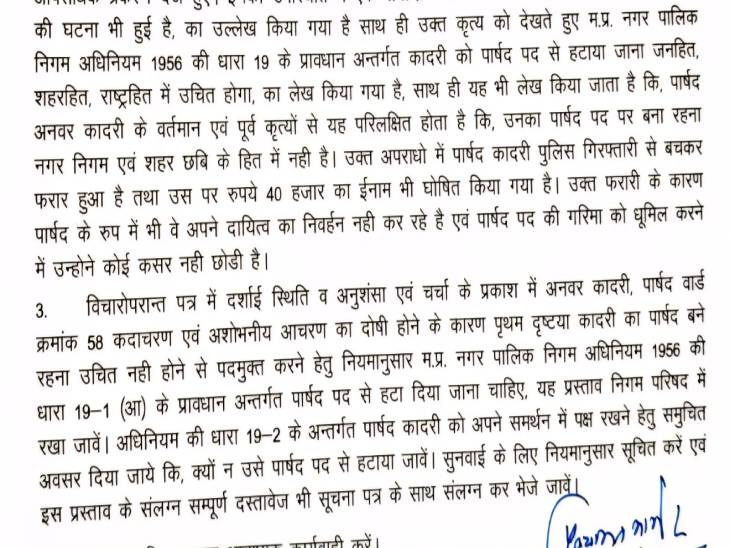 की घटना भी हुई है, का उल्लेख किया गया है साथ ही उक्त कृत्य को देखते हुए म.प्र. नगर पालिक
निगम अधिनियम 1956 की धारा 19 के प्रावधान अन्तर्गत कादरी को पार्षद पद से हटाया जाना जनहित,
शहरहित, राष्ट्रहित में उचित होगा, का लेख किया गया है, साथ ही यह भी लेख किया जाता है कि, पार्षद
अनवर कादरी के वर्तमान एवं पूर्व कृत्यों से यह परिलक्षित होता है कि, उनका पार्षद पद पर बना रहना
नगर निगम एवं शहर छबि के हित में नही है। उक्त अपराधो में पार्षद कादरी पुलिस गिरफ्तारी से बचकर
फरार हुआ है तथा उस पर रुपये 40 हजार का ईनाम भी घोषित किया गया है। उक्त फरारी के कारण
पार्षद के रुप में भी वे अपने दायित्व का निवर्हन नही कर रहे है एवं पार्षद पद की गरिमा को धूमिल करने
में उन्होने कोई कसर नही छोडी है।
3. विचारोपरान्त पत्र में दर्शाई स्थिति व अनुशंसा एवं चर्चा के प्रकाश में अनवर कादरी, पार्षद वार्ड
क्रमांक 58 कदाचरण एवं अशोभनीय आचरण का दोषी होने के कारण पृथम दृष्टया कादरी का पार्षद बने
रहना उचित नही होने से पदमुक्त करने हेतु नियमानुसार म.प्र. नगर पालिक निगम अधिनियम 1956 की
धारा 19–1 (आ) के प्रावधान अन्तर्गत पार्षद पद से हटा दिया जाना चाहिए, यह प्रस्ताव निगम परिषद में
रखा जावें। अधिनियम की धारा 19–2 के अन्तर्गत पार्षद कादरी को अपने समर्थन में पक्ष रखने हेतु समुचित
अवसर दिया जाये कि, क्यों न उसे पार्षद पद से हटाया जावें। सुनवाई के लिए नियमानुसार सूचित करें एवं
इस प्रस्ताव के संलग्न सम्पूर्ण दस्तावेज भी सूचना पत्र के साथ संलग्न कर भेजे जावें।
कार्यवाही करें।